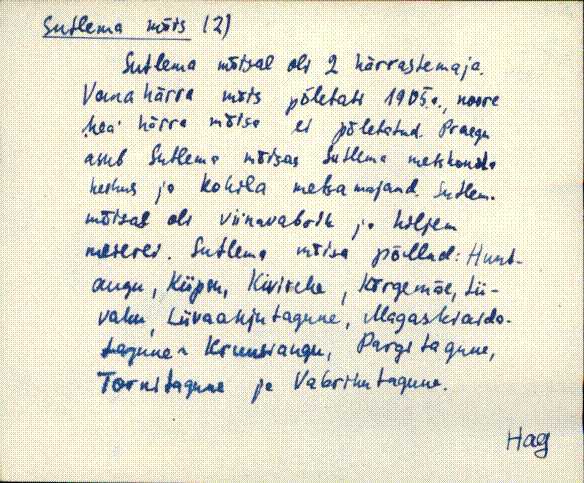 Sutlema mõis (2)
Sutlema mõisal oli 2 härrastemaja.
Vana härra mõis põletati 1905.a., noore
"hea" härra mõisa ei põletatud. Praegu
asub Sutlema mõisas Sutlema metskonda
keskus ja Kohila metsamajand. Sutlem.
mõisas oli viinavabrik ja hiljem
meierei. Sutlema mõisa põllud: Hunt-
augu, Küpsu, Kivische, Kõrgemäe, Lii-
vaku, Liivaaugutagune, Magaskiaida-
tagune, Kruusiaugu, Pargitagune,
Tornitagune ja Vabrikutagune.
Hag